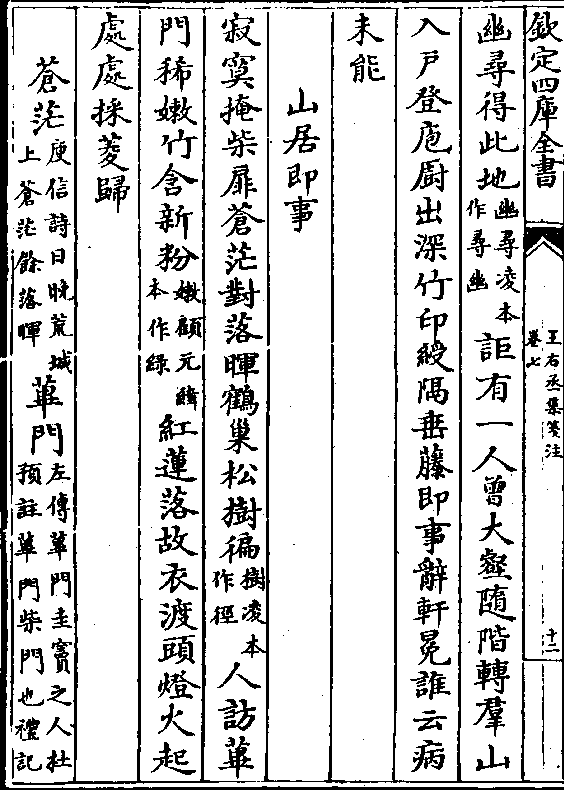 欽定四庫全書
王右丞集箋注
卷七
十二
幽尋得此地幽尋凌本作尋幽詎有一人曾大壑隨階轉羣山
入戸登庖廚出深竹印綬隔垂藤即事辭軒冕誰云病
未能
山居即事
寂寞掩柴扉蒼茫對落暉鶴巢松樹徧樹凌本作徑人訪蓽
門稀嫩竹含新粉嫩顧元緯本作綠紅蓮落故衣渡頭燈火起
處處採菱歸
蒼茫庾信詩日晚荒城上蒼茫餘落暉蓽門左傳蓽門圭竇之人杜預註蓽門柴門也禮記